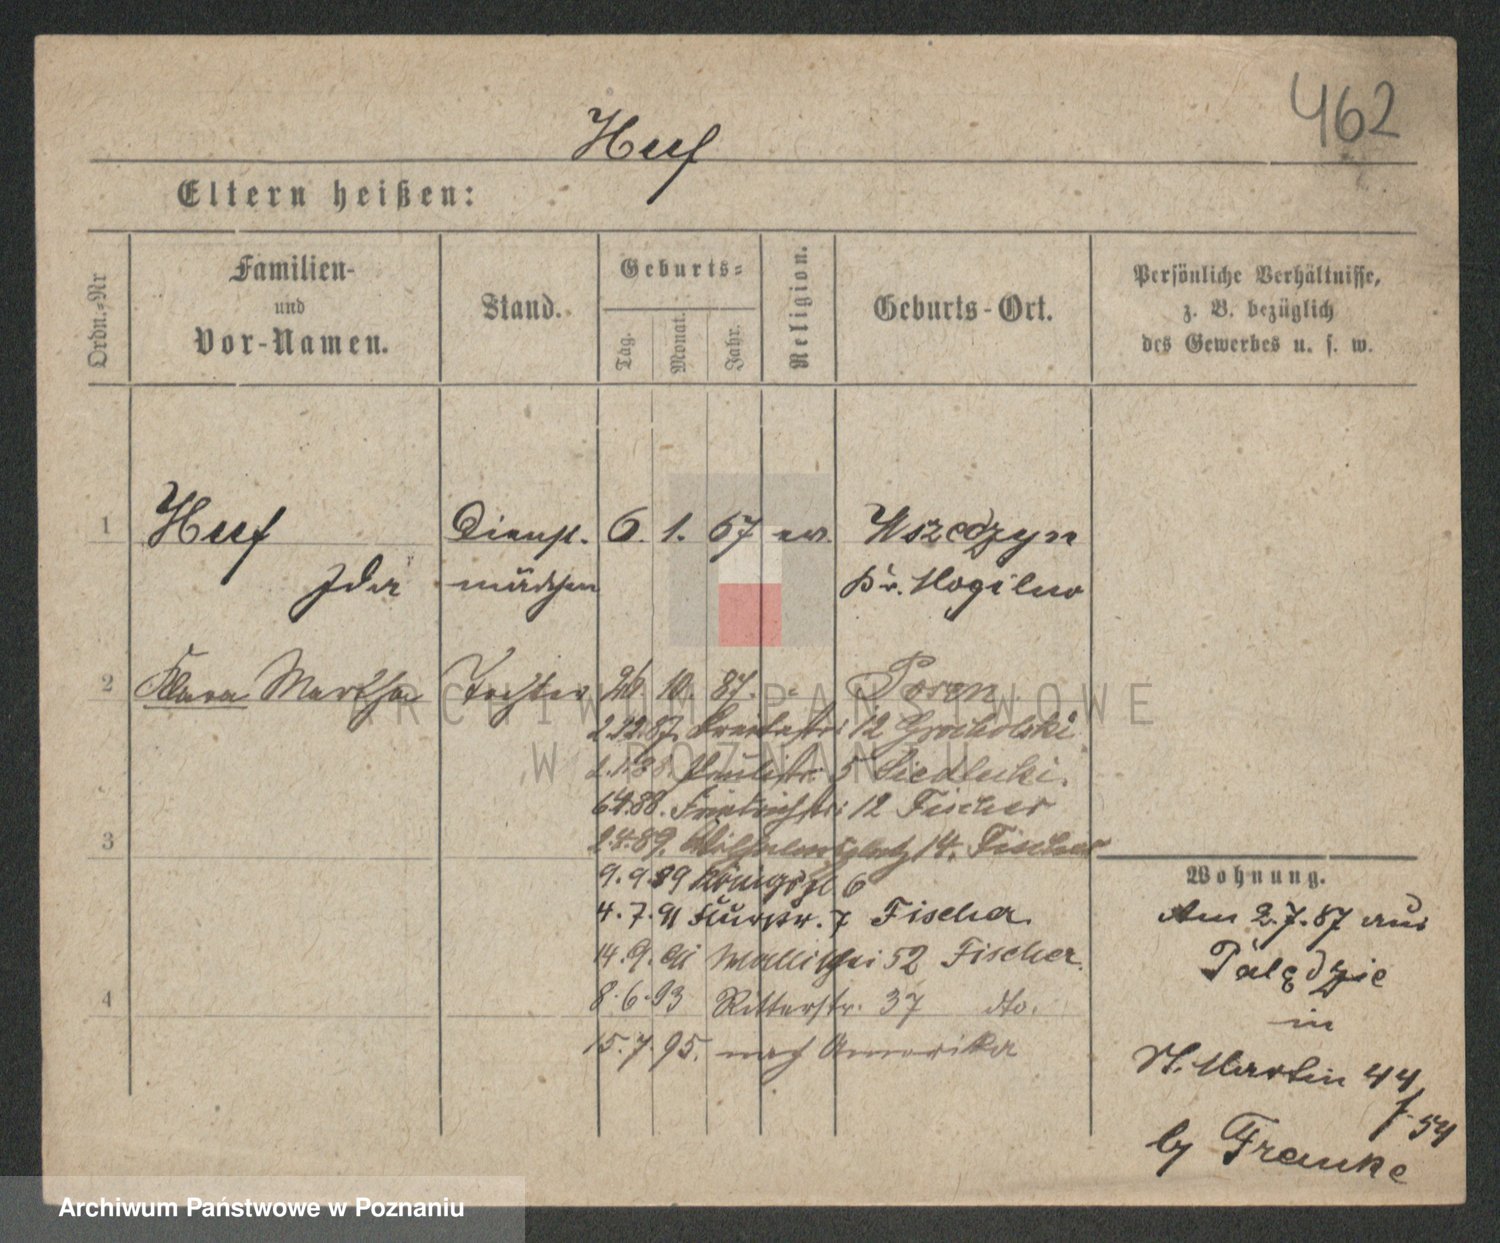 462
Huf
Eltern heißen:
Ordn.-Nr
Familien-
und
Vor-Namen.
Stand.
Geburts-
Tag.
Monat.
Jahr.
Religion.
Geburts-Ort.
Persönliche Verhältnisse,
z. B. bezüglich
des Gewerbes u. s. w.
1 Huf Dienst- 6. 1. 67 ev. Wszedzyn
Ida mädchen Kr. Mogilno
2 Klara Martha Tochter 10. 87. Posen
2.12.87. 12 Grocholski
5 Siedlecki.
6.4.88. Friedrichstr 12 Fischer
3
2.4.89. Wilhelmsplatz 14. Fischer
9.9.89 Königspl 6
4.7.91 Fischer
14.9.91 Wallischei 52 Fischer.
4
8.6.93 Ritterstr. 37 dto.
15.7.95. nach Amerika
Wohnung.
Am 2.7.87 aus
Palędzie
in
St. Martin 44
by Franke
ARCHIWUM PAŃSTWOWE
W POZNANIU
Archiwum Państwowe w Poznaniu